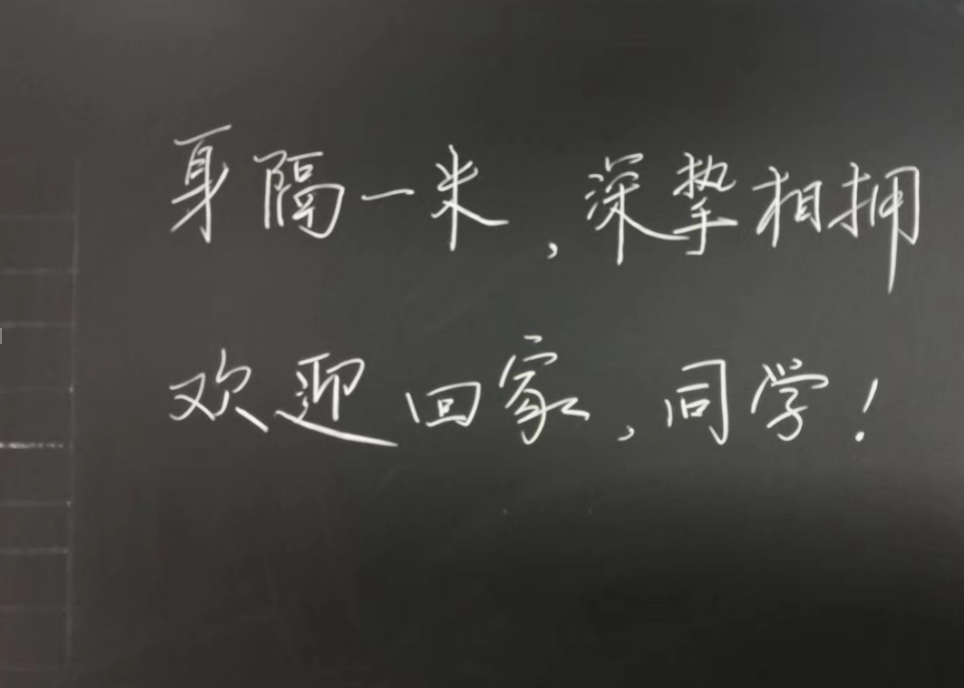 身隔一米,深挚相拥
欢迎回家,同学!